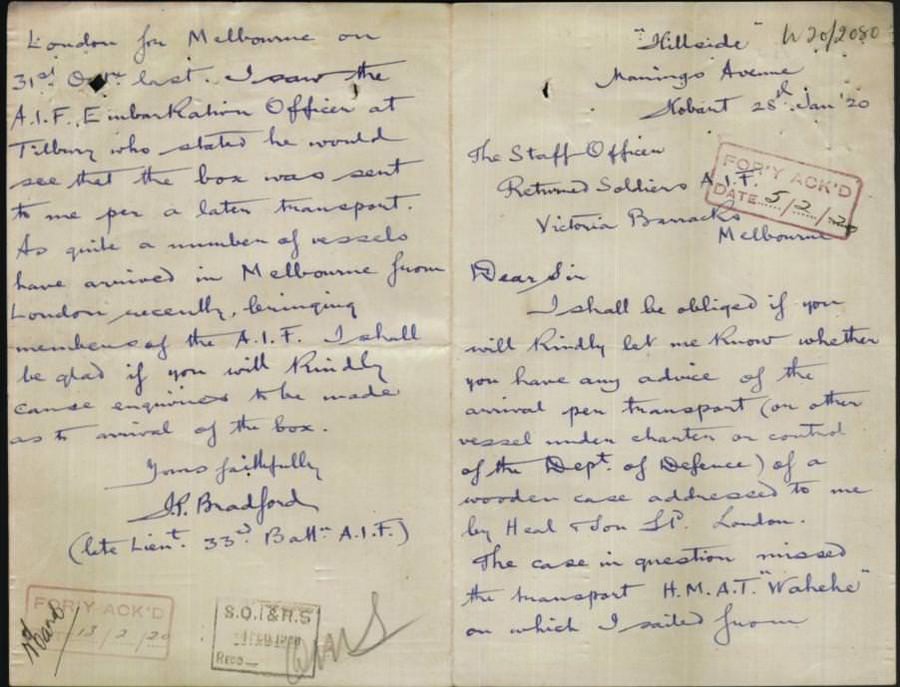 "Hillside" W20/2080
Manings Avenue
Hobart 28th Jan '20
The Staff Officer
Returned Soldiers A.I.F.
Victoria Barracks
Melbourne
FOR'Y ACK'D
DATE 5/2/20
Dear Sir
I shall be obliged if you
will kindly let me know whether
you have any advice of the
arrival per transport (or other
vessel under charter or control
of the Dept. of Defence) of a
wooden case addressed to me
by Heal & Son Ld. London.
The case in question missed
the transport H.M.A.T. "Wahehe"
on which I sailed from
London for Melbourne on
31st last. I saw the
A.I.F. Embarkation Officer at
Tilbury who stated he would
see that the box was sent
to me per a later transport.
As quite a number of vessels
have arrived in Melbourne from
London recently, bringing
members of the A.I.F. I shall
be glad if you will kindly
cause enquiries to be made
as to arrival of the box.
Yours faithfully
Bradford
(late Lieut. 33rd Battn A.I.F.)
FOR'Y ACK'D
13/2/20
S.O.I.&R.S
RECD—